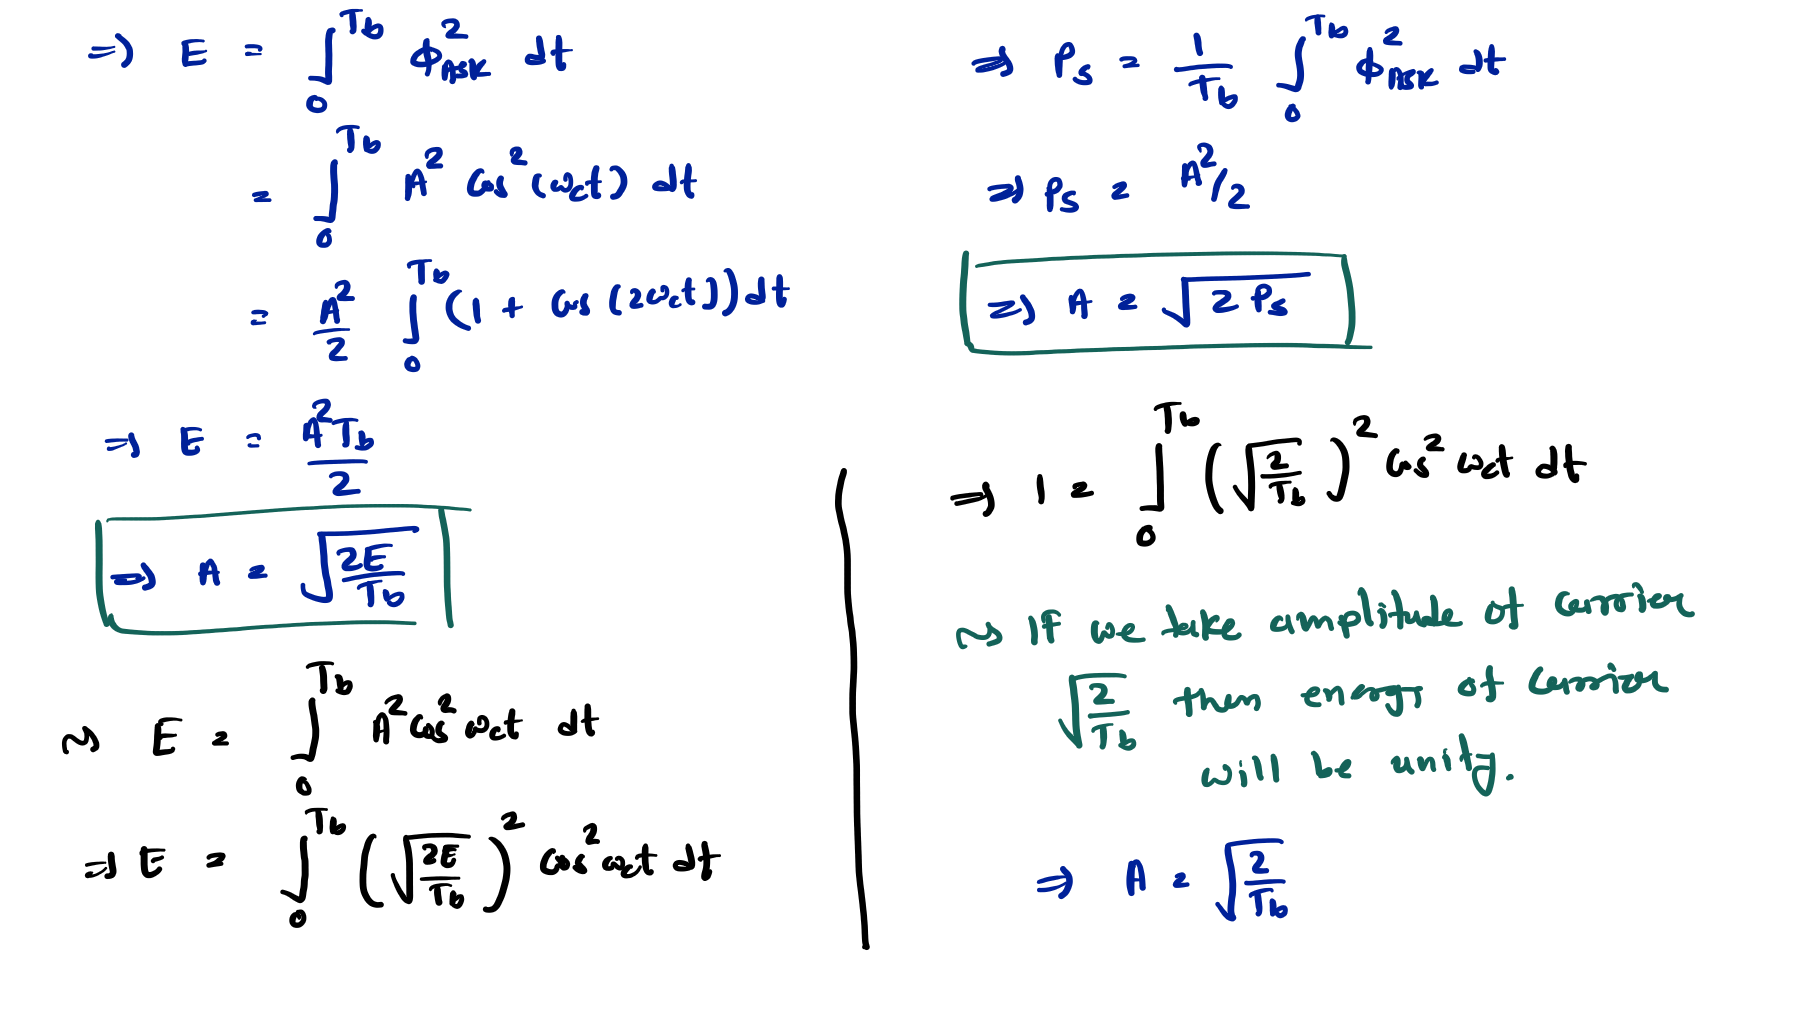 ⇒ E = ∫₀^{T_b} ϕ²_{ASK} dt
= ∫₀^{T_b} A² Cos²(ω_c t) dt
= A²/2 ∫₀^{T_b} (1 + Cos (2ω_c t)) dt
⇒ E = A² T_b / 2
⇒ A = √(2E/T_b)
~> E = ∫₀^{T_b} A² Cos² ω_c t dt
⇒ E = ∫₀^{T_b} (√(2E/T_b))² Cos² ω_c t dt
⇒ P_s = 1/T_b ∫₀^{T_b} ϕ²_{ASK} dt
⇒ P_s = A²/2
⇒ A = √(2 P_s)
⇒ 1 = ∫₀^{T_b} (√(2/T_b))² Cos² ω_c t dt
~> If we take amplitude of Carrier
√(2/T_b) then energy of Carrier
will be unity.
⇒ A = √(2/T_b)